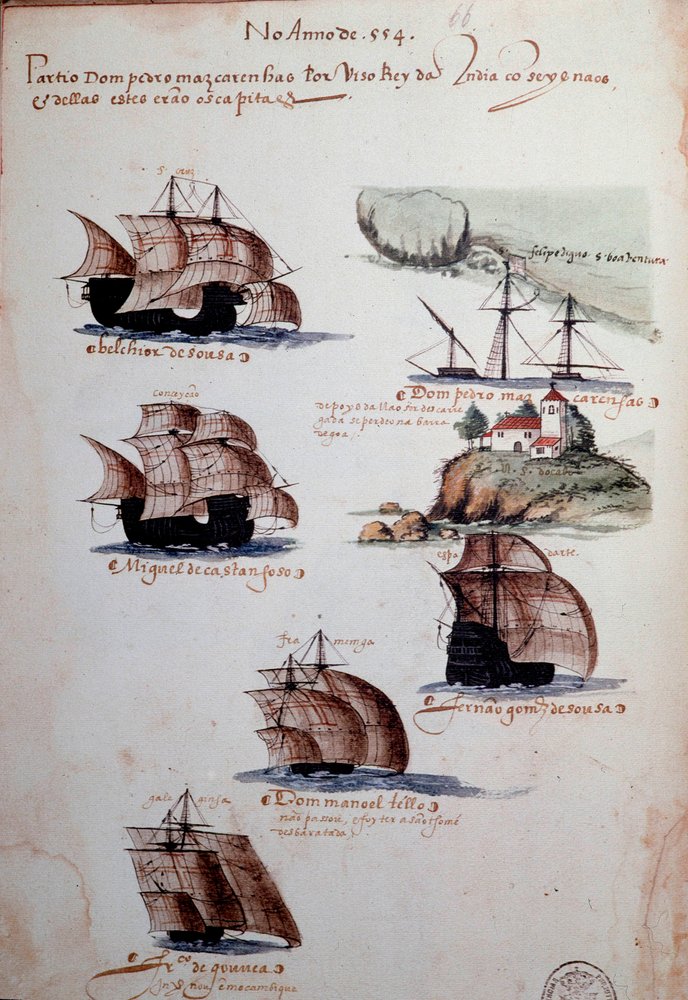 66
No Anno de . 554 .
Partio Dom pedro mazcarenhas por Viso Rey da India cõ seys naos,
e dellas estes erão os capitães
S. cruz
belchior de sousa
felipe diguo S. boaventura
Dom pedro mazcarenhas
depoys da nao ser descarre
gada se perdeo na barra
de goa
Conceyção
Miguel de castanhoso
N. S. do cabo
espadarte.
fernão gomz de sousa
framenga
Dom manoel tello
não passou, e foy ter a são thomé
desbaratada
galega
frco de gouvea
em moçambique